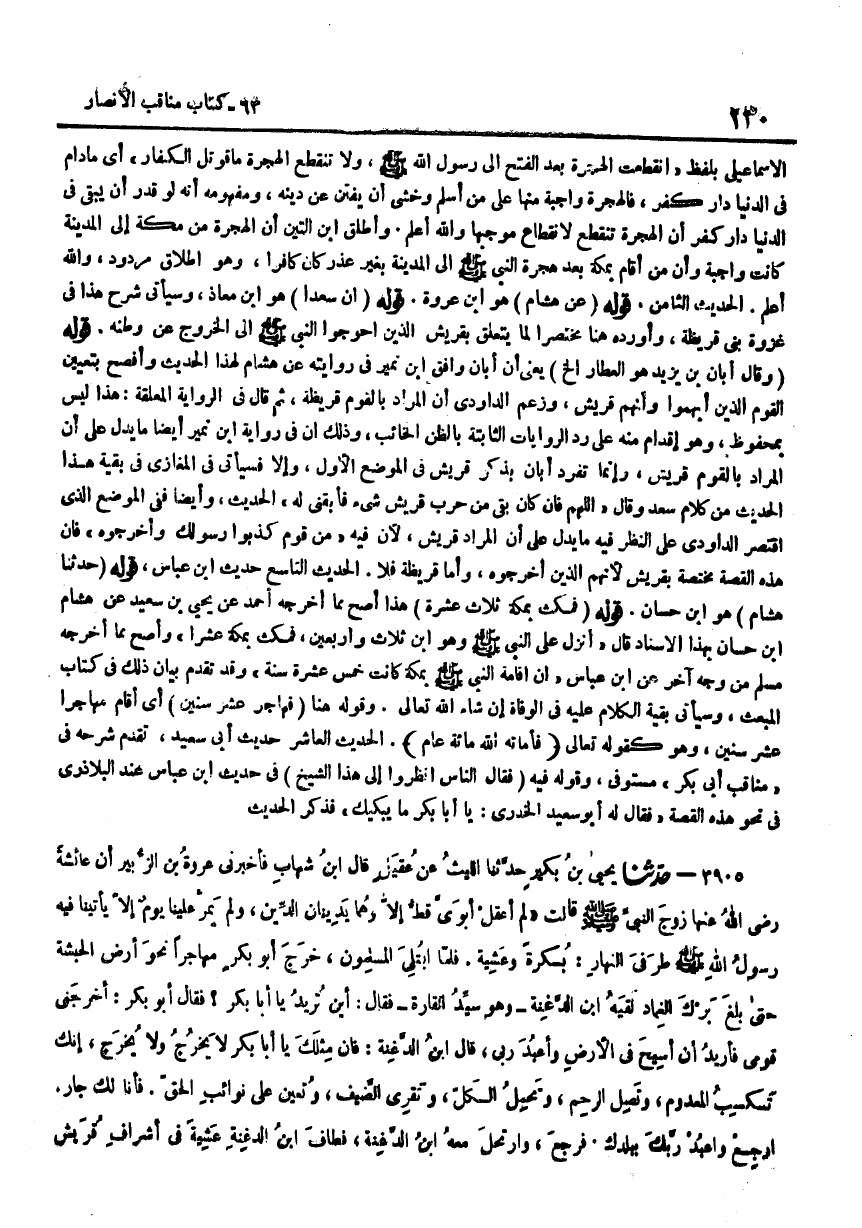 ٢٣٠
٦٣ - كتاب مناقب الأنصار
الاسماعيلى بلفظ « انقطعت الهجرة بعد الفتح الى رسول الله ﷺ ، ولا تنقطع الهجرة ماقوتل الكفار ، أى مادام
فى الدنيا دار كفر ، فالهجرة واجبة منها على من أسلم وخشى أن يفتن عن دينه ، ومفهومه أنه لو قدر أن يبقى فى
الدنيا دار كفر أن الهجرة تنقطع لانقطاع موجبها والله أعلم . وأطلق ابن التين أن الهجرة من مكة إلى المدينة
كانت واجبة وأن من أقام بمكة بعد هجرة النبي ﷺ الى المدينة بغير عذر كان كافرا ، وهو اطلاق مردود ، والله
أعلم . الحديث الثامن . قوله ( عن هشام ) هو ابن عروة . قوله ( ان سعدا ) هو ابن معاذ ، وسيأتى شرح هذا فى
غزوة بنى قريظة ، وأورده هنا مختصرا لما يتعلق بقريش الذين احوجوا النبي ﷺ الى الخروج عن وطنه . قوله
( وقال أبان بن يزيد هو العطار الخ ) يعنى أن أبان وافق ابن نمير فى روايته عن هشام لهذا الحديث وأفصح بتعيين
القوم الذين أبهموا وأنهم قريش ، وزعم الداودى أن المراد بالقوم قريظة ، ثم قال فى الرواية المعلقة : هذا ليس
بمحفوظ ، وهو إقدام منه على رد الروايات الثابتة بالظن الخائب ، وذلك ان فى رواية ابن نمير أيضا مايدل على أن
المراد بالقوم قريش ، وإنما تفرد أبان بذكر قريش فى الموضع الأول ، وإلا فسيأتى فى المغازى فى بقية هذا
الحديث من كلام سعد وقال « اللهم فان كان بقى من حرب قريش شىء فأبقنى له ، الحديث ، وأيضا ففى الموضع الذى
اقتصر الداودى على النظر فيه مايدل على أن المراد قريش ، لأن فيه « من قوم كذبوا رسولك وأخرجوه ، فان
هذه القصة مختصة بقريش لأنهم الذين أخرجوه ، وأما قريظة فلا . الحديث التاسع حديث ابن عباس ، قوله ( حدثنا
هشام ) هو ابن حسان . قوله ( فمكث بمكة ثلاث عشرة ) هذا أصح مما أخرجه أحمد عن يحيى بن سعيد عن هشام
ابن حسان بهذا الاسناد قال « أنزل على النبي ﷺ وهو ابن ثلاث وأربعين ، فمكث بمكة عشرا ، وأصح مما أخرجه
مسلم من وجه آخر عن ابن عباس « ان اقامة النبي ﷺ بمكة كانت خمس عشرة سنة ، وقد تقدم بيان ذلك فى كتاب
المبعث ، وسيأتى بقية الكلام عليه فى الوفاة إن شاء الله تعالى . وقوله هنا ( فهاجر عشر سنين ) أى أقام مهاجرا
عشر سنين ، وهو كقوله تعالى ( فأماته الله مائة عام ) . الحديث العاشر حديث أبى سعيد ، تقدم شرحه فى
« مناقب أبى بكر ، مستوفى ، وقوله فيه ( فقال الناس انظروا إلى هذا الشيخ ) فى حديث ابن عباس عند البلاذرى
فى نحو هذه القصة « فقال له أبو سعيد الخدرى : يا أبا بكر ما يبكيك ، فذكر الحديث
٣٩٠٥ – حدثنا يحيى بنُ بكير حدَّثنا الليثُ عن عُقيل قال ابنُ شهاب فأخبرنى عروةُ بن الزُّبير أن عائشةَ
رضى اللهُ عنها زوجَ النبيِّ ﷺ قالت « لم أعقل أبوىَّ قطُّ إلاَّ وهُما يَدِينان الدِّين ، ولم يَمرَّ علينا يومٌ إلاَّ يأتينا فيه
رسولُ اللهِ ﷺ طرفَىِ النهار : بُكرةً وعَشِية . فلمّا ابتُلِىَ المسلمون ، خرَجَ أبو بكر مهاجراً نحوَ أرضِ الحبشة
حتىٰ بلغَ بَرْكَ الغِماد لَقيَهُ ابن الدَّغِنة ـ وهو سيِّدُ القارة ـ فقال : أين تُريدُ يا أبا بكر ؟ فقال أبو بكر : أخرجَنى
قومى فأريدُ أن أسِيحَ فى الأرضِ وأعبدَ ربى ، قال ابنُ الدَّغِنة : فان مِثلَكَ يا أبا بكر لايَخرُجُ ولا يُخرَج ، إنك
تَكسِبُ المعدوم ، وتَصِل الرحِم ، وتحمِلُ الكلَّ ، وتَقرِى الضَّيف ، وتُعين على نوائبِ الحقّ . فأنا لك جار .
ارجِعْ واعبُدْ ربَّكَ ببلدك . فرجعَ ، وارتحلَ معه ابنُ الدَّغِنة ، فطافَ ابنُ الدغِنةِ عَشِيةً فى أشرافِ قُرَيش